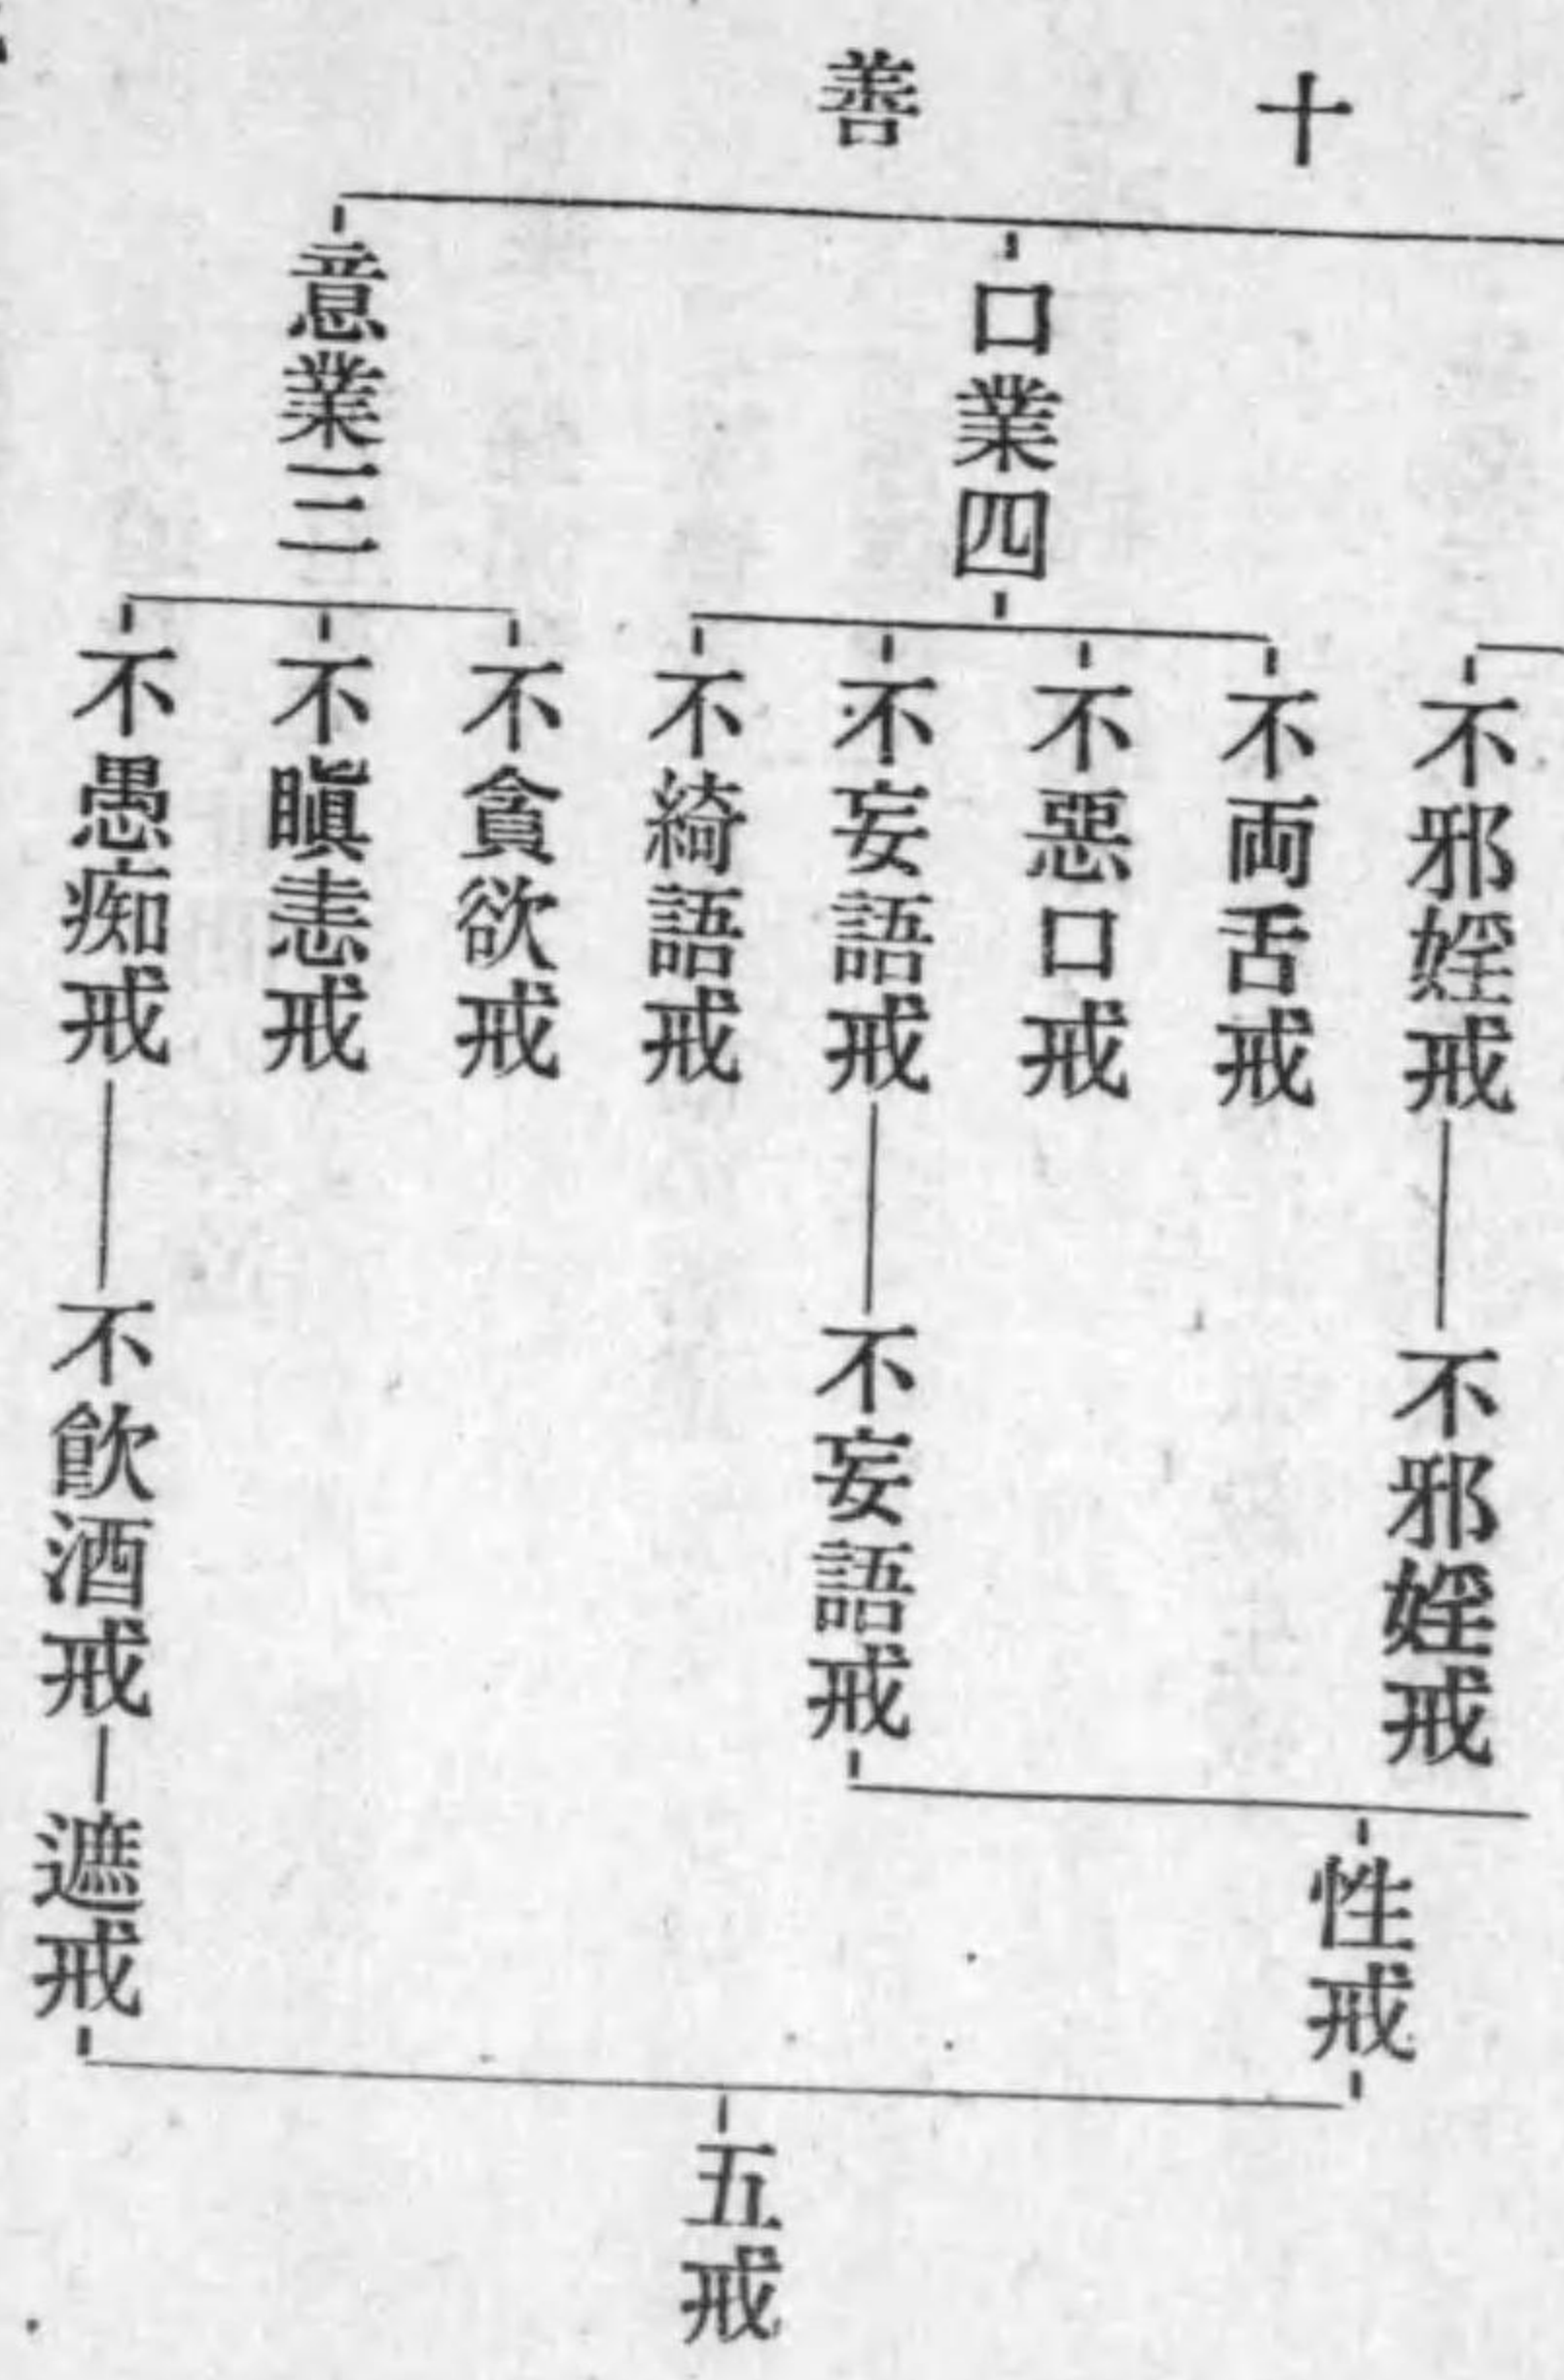 十善
不邪婬戒
不邪婬戒
口業四
不両舌戒
不惡口戒
不妄語戒
不妄語戒
不綺語戒
性戒
意業三
不貪欲戒
不瞋恚戒
不愚痴戒
不飮酒戒
遮戒
五戒